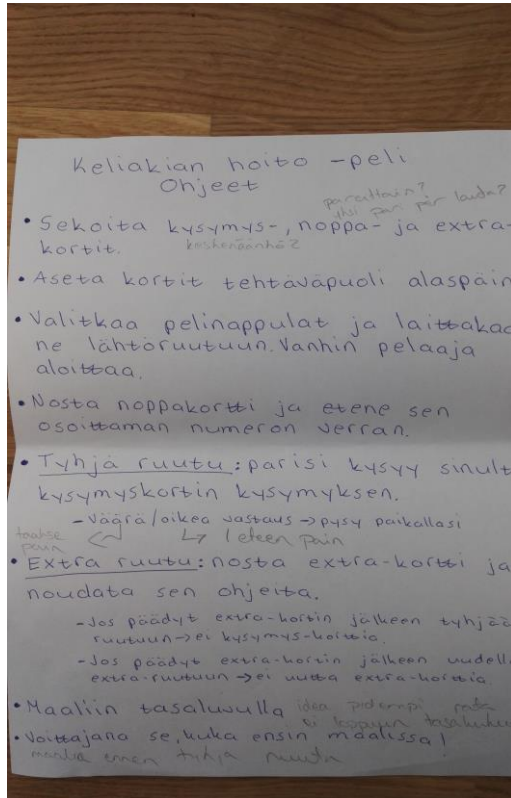 Keliakian hoito -peli
Ohjeet
pareittain?
yksi pari per lauta?
• Sekoita kysymys-, noppa- ja extra-
kortit.
keskenäänkö?
• Aseta kortit tehtäväpuoli alaspäin
• Valitkaa pelinappulat ja laittakaa
ne lähtöruutuun. Vanhin pelaaja
aloittaa.
• Nosta noppakortti ja etene sen
osoittaman numeron verran.
• Tyhjä ruutu: parisi kysyy sinult
kysymyskortin kysymyksen.
- Väärä/oikea vastaus → pysy paikallasi
taakse
päin
1 eteen päin
• Extra ruutu: nosta extra-kortti ja
noudata sen ohjeita.
- Jos päädyt extra-kortin jälkeen tyhjää
ruutuun → ei kysymys-korttia.
- Jos päädyt extra-kortin jälkeen uudell
extra-ruutuun → ei uutta extra-korttia.
• Maaliin tasaluvulla idea pidempi
ei
• Voittajana se, kuka ensin maalissa!
ennen tyhjä ruutu